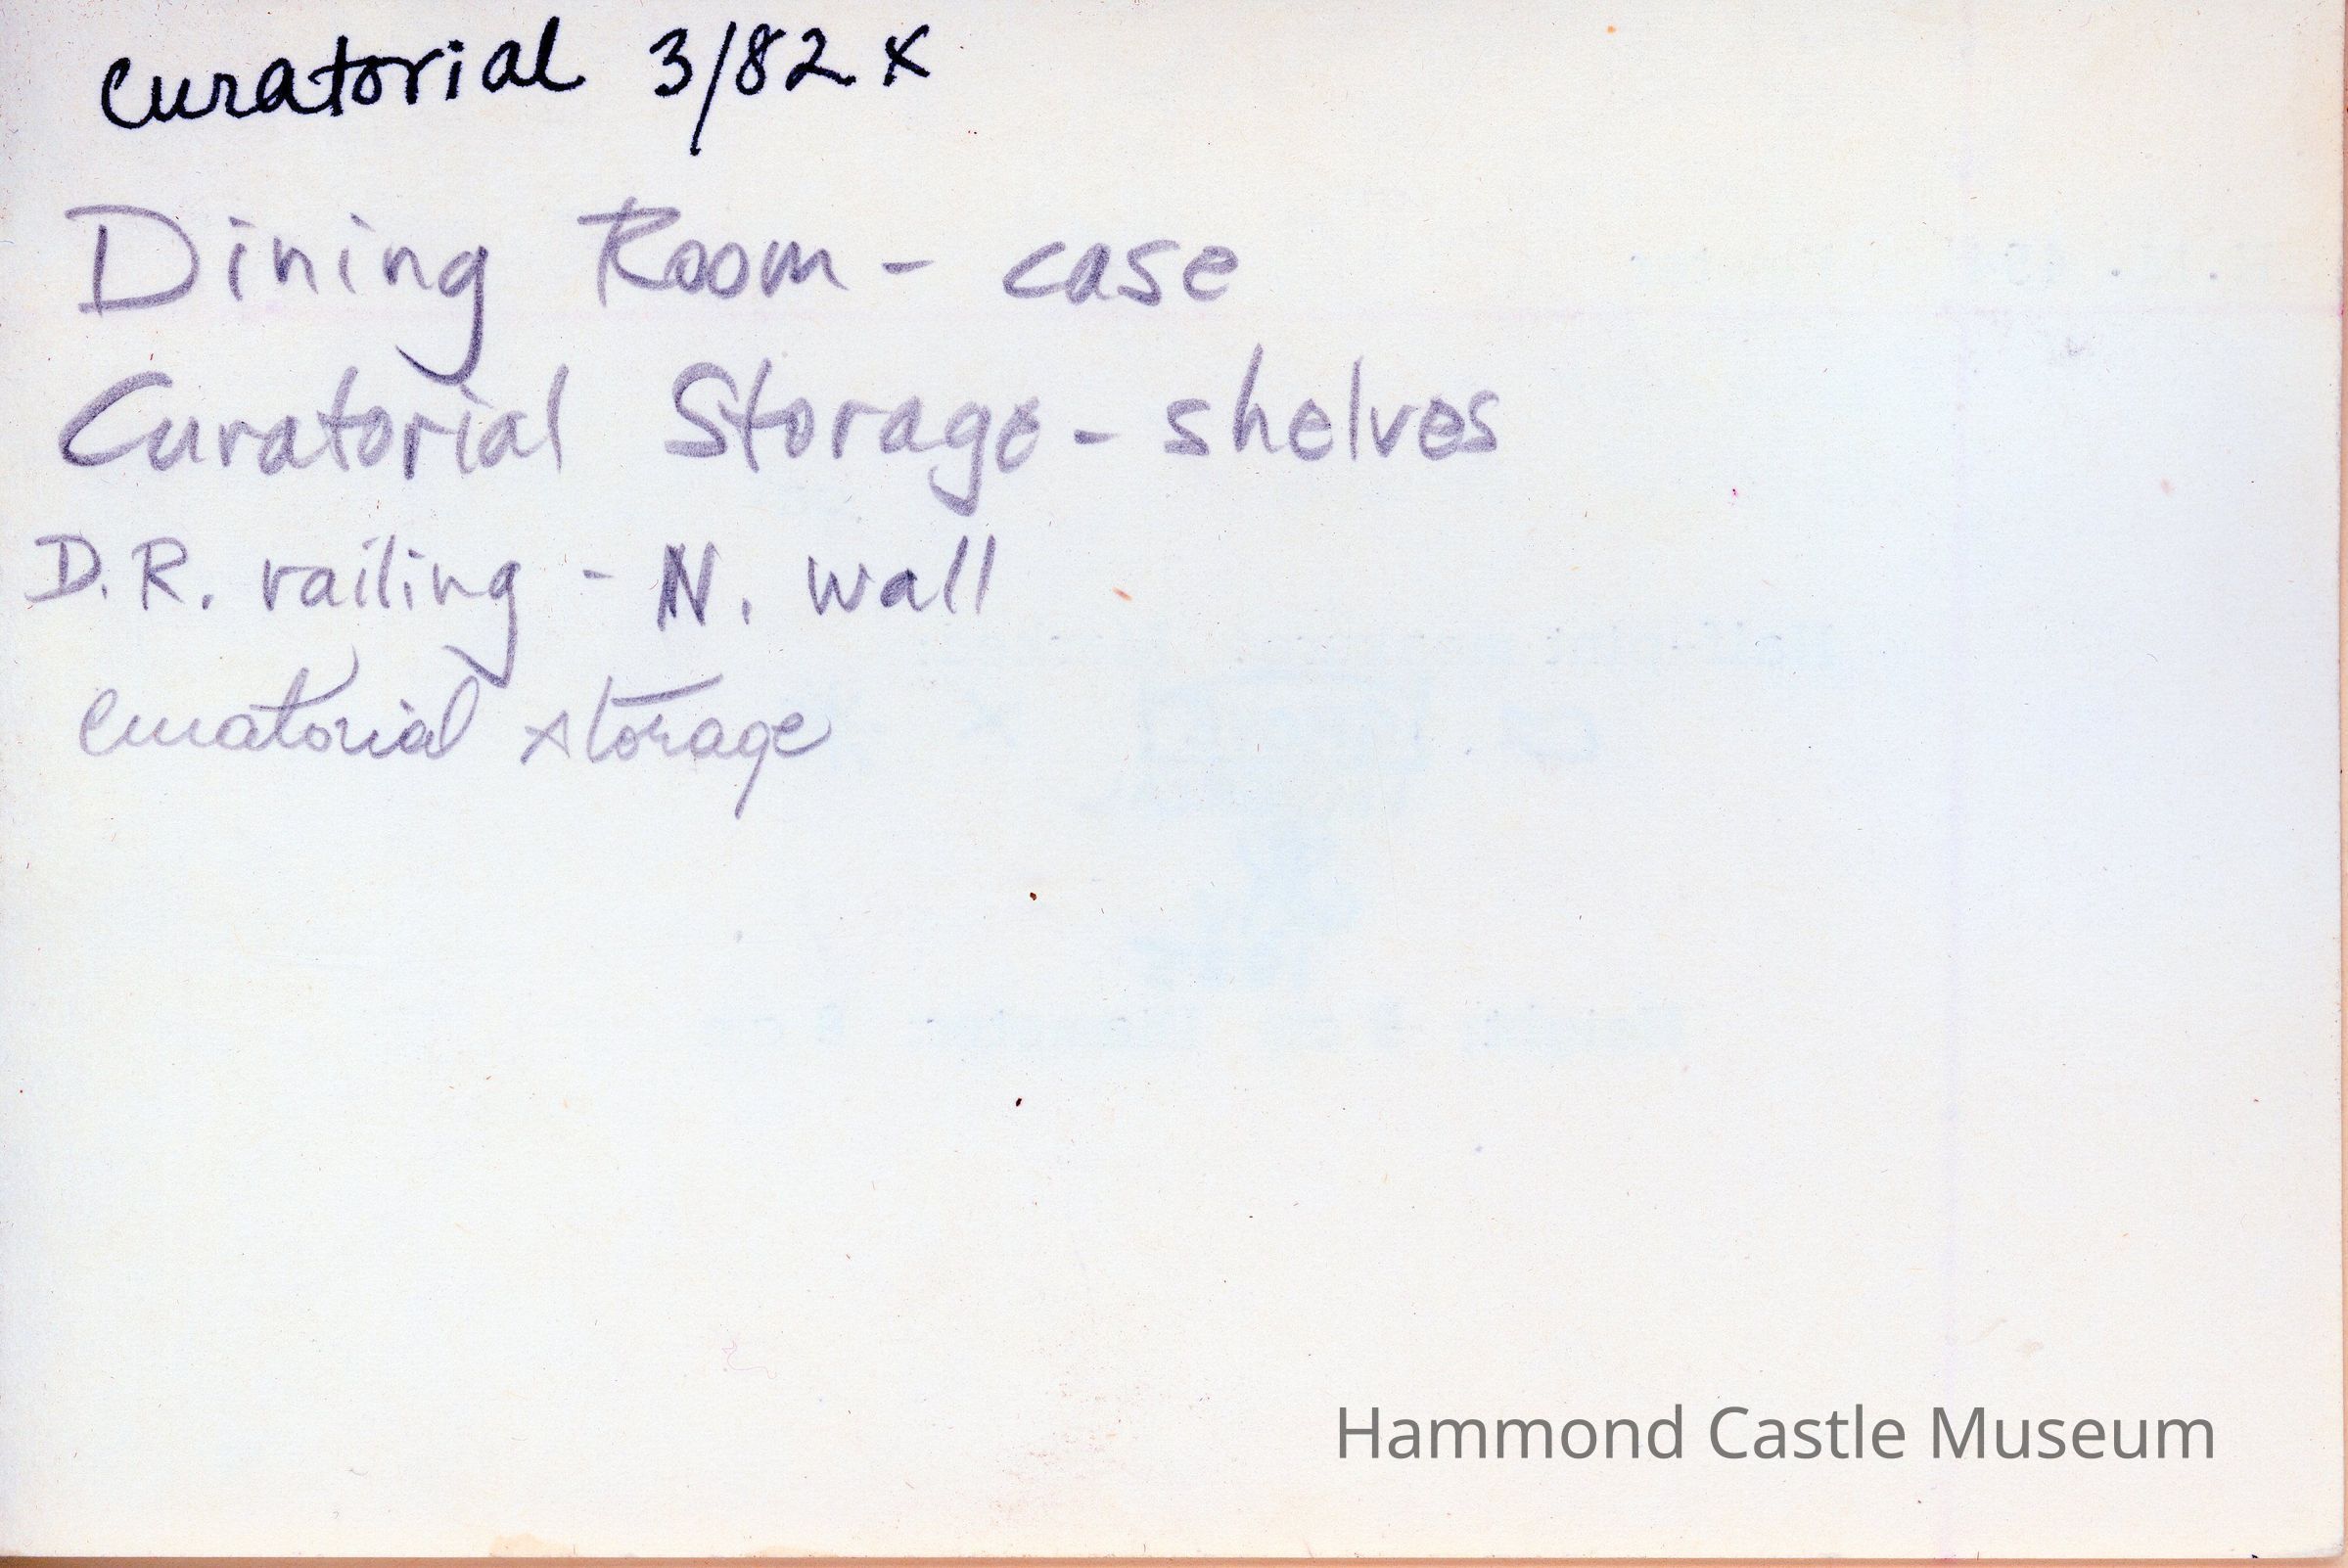 curatorial 3/82 x
Dining Room - case
Curatorial Storage - shelves
D.R. railing - N. wall
curatorial storage
Hammond Castle Museum